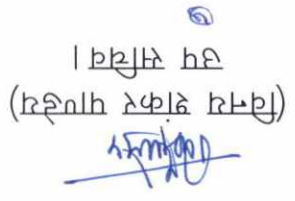 (विनय शंकर पाण्डेय)
उप सचिव।